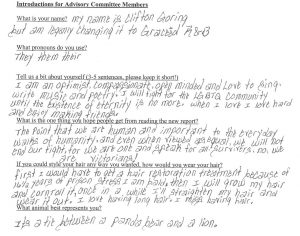 Introductions for Advisory Committee Members
What is your name? my name is Clifton Goring
but am legally changing it to Graceset A3-B
What pronouns do you use?
They them their
Tell us a bit about yourself (3-5 sentences, please keep it short!)
I am an optimist, compassionate, open minded and love to sing,
write music and poetry. I will fight for the LGBTQ community
until the existence of eternity is no more. when I love I love hard
and easy making friends.
What is the one thing you hope people get from reading the new report?
The point that we are human and important to the everyday
walks of humanity, and even when viewed as equal, we will not
end our fight, for we are one and speak for all survivors, no, we
are victorians!
If you could style your hair any way you wanted, how would you wear your hair?
First I would have to get a hair restoration treatment because of
years of prison stress I am bald, then I will grow my hair
and cornroll it, once in a while I'll straighten my hair and
wear it out. I love having long hair. I miss having hair.
What animal best represents you?
Its a tie between a panda bear and a lion.